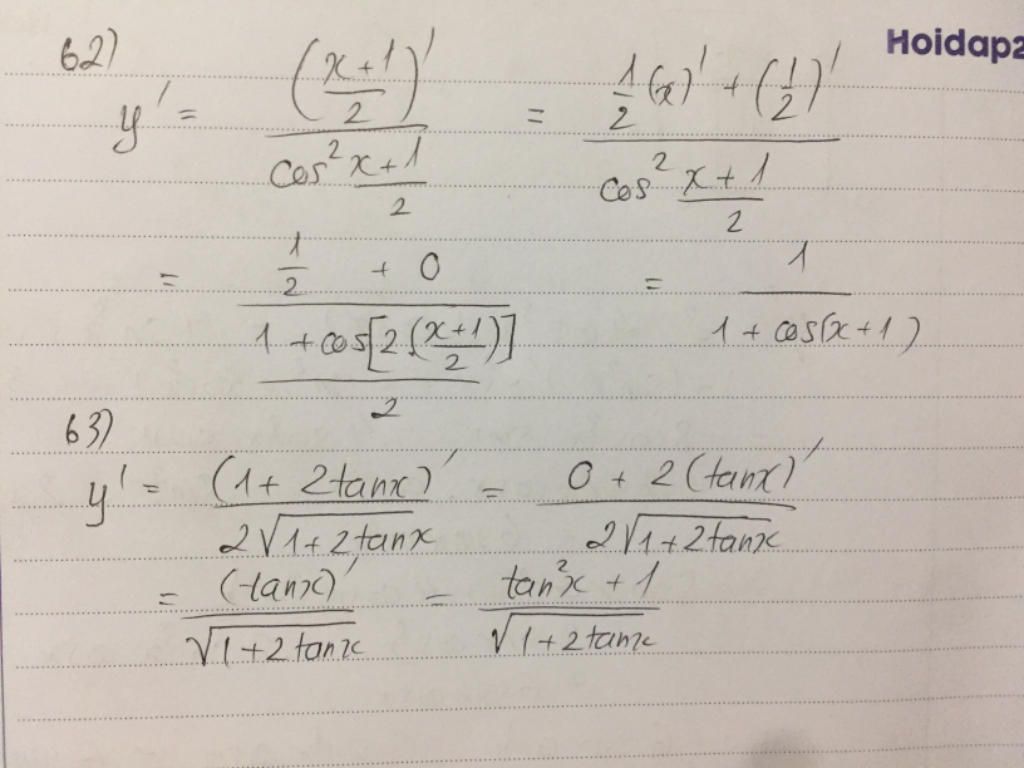 Hoidap2
62)
y' = \frac{\left(\frac{x+1}{2}\right)'}{\cos^2 \frac{x+1}{2}} = \frac{\frac{1}{2}(x)' + \left(\frac{1}{2}\right)'}{\cos^2 \frac{x+1}{2}}
= \frac{\frac{1}{2} + 0}{\frac{1 + \cos\left[2.\left(\frac{x+1}{2}\right)\right]}{2}} = \frac{1}{1 + \cos(x+1)}
63)
y' = \frac{(1 + 2\tan x)'}{2\sqrt{1 + 2\tan x}} = \frac{0 + 2(\tan x)'}{2\sqrt{1 + 2\tan x}}
= \frac{(\tan x)'}{\sqrt{1 + 2\tan x}} = \frac{\tan^2 x + 1}{\sqrt{1 + 2\tan x}}